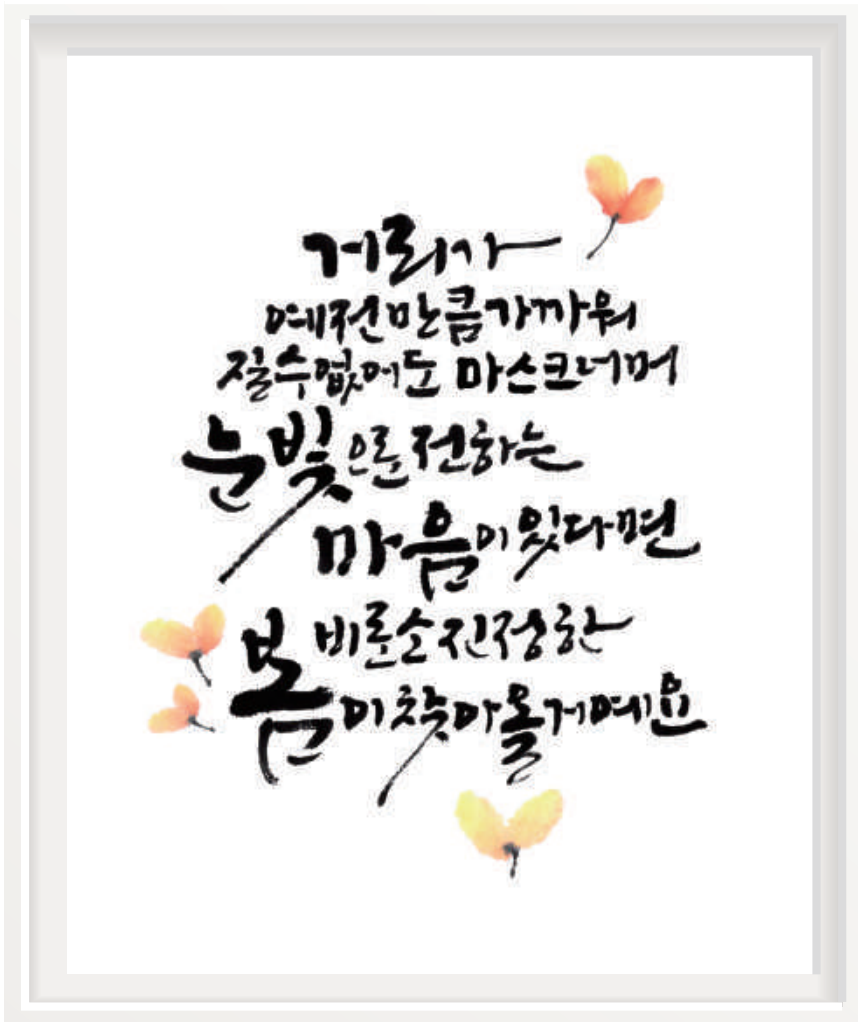 거리가
예전만큼 가까워
질 수 없어도 마스크 너머
눈빛으론 전하는
마음이 있다면
비론소 진정한
봄이 찾아올 거예요